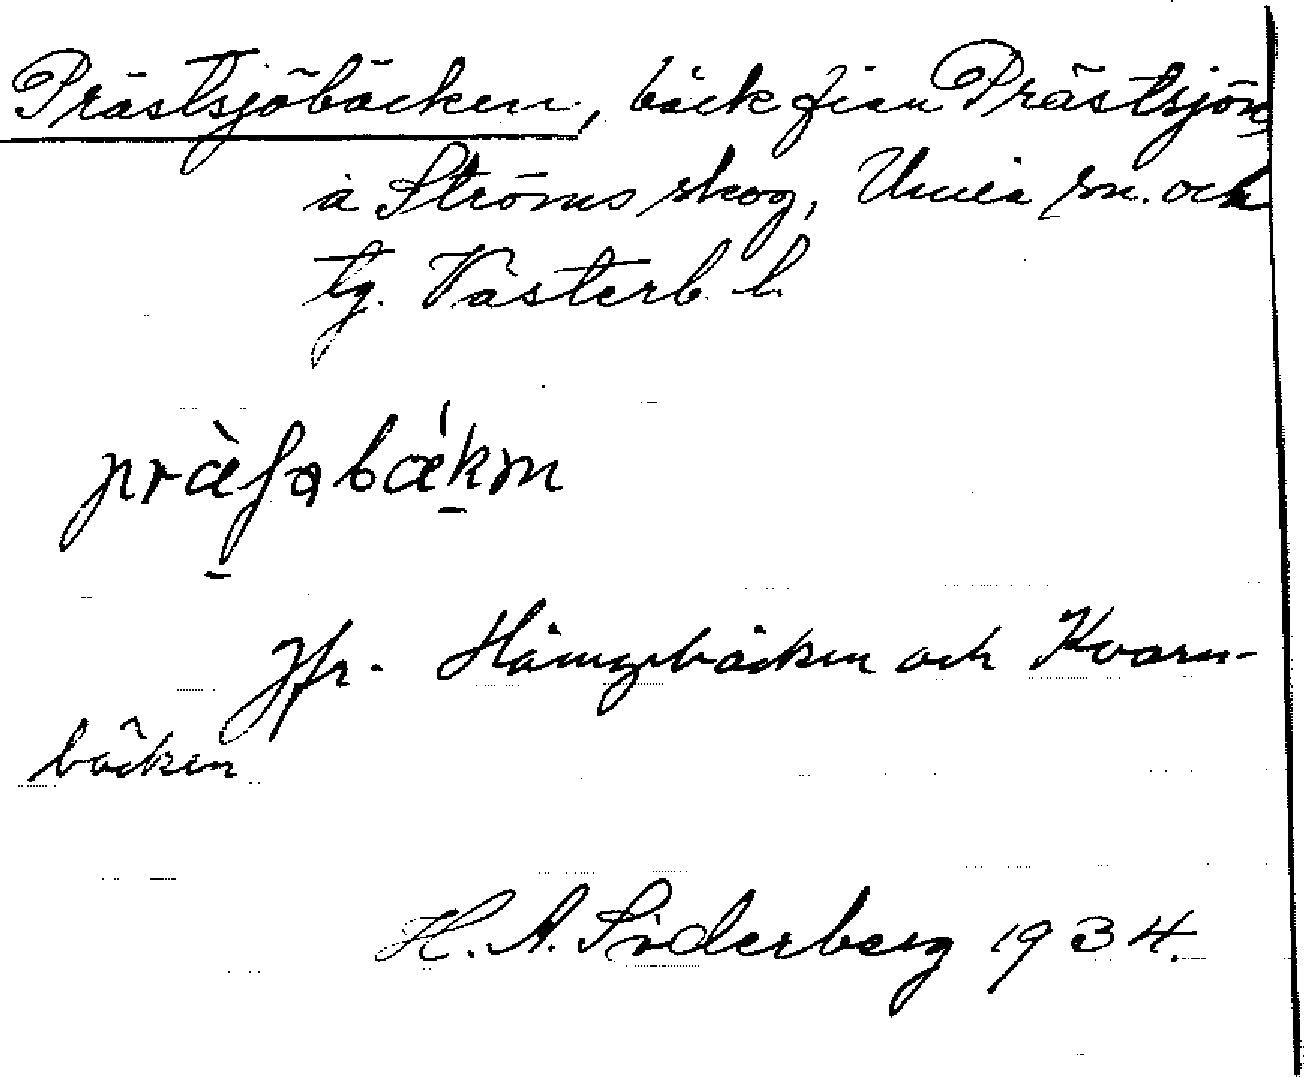 Prästsjöbäcken, bäck från Prästsjön
å Ströms skog, Umeå sn. och
tg. Västerb. l.
Jfr. Hamgsbäcken och Kvarn-
bäcken
H. A. Söderberg 1934.